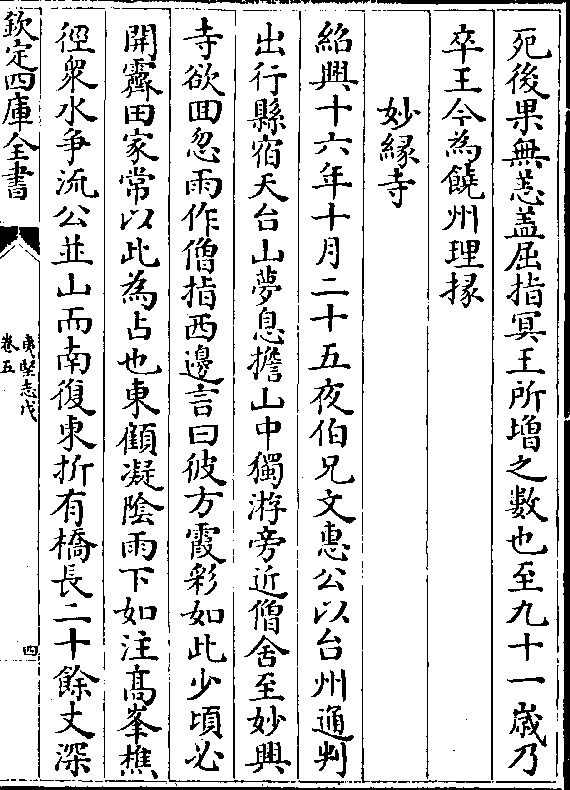 死後果無恙蓋屈指冥王所增之數也至九十一歲乃
卒王今為饒州理掾
妙緣寺
紹興十六年十月二十五夜伯兄文惠公以台州通判
出行縣宿天台山夢息擔山中獨游旁近僧舍至妙興
寺欲回忽雨作僧指西邊言曰彼方霞彩如此少頃必
開霽田家常以此為占也東顧凝陰雨下如注高峯樵
徑衆水爭流公並山而南復東折有橋長二十餘丈深
欽定四庫全書
夷堅志戊
卷五
四